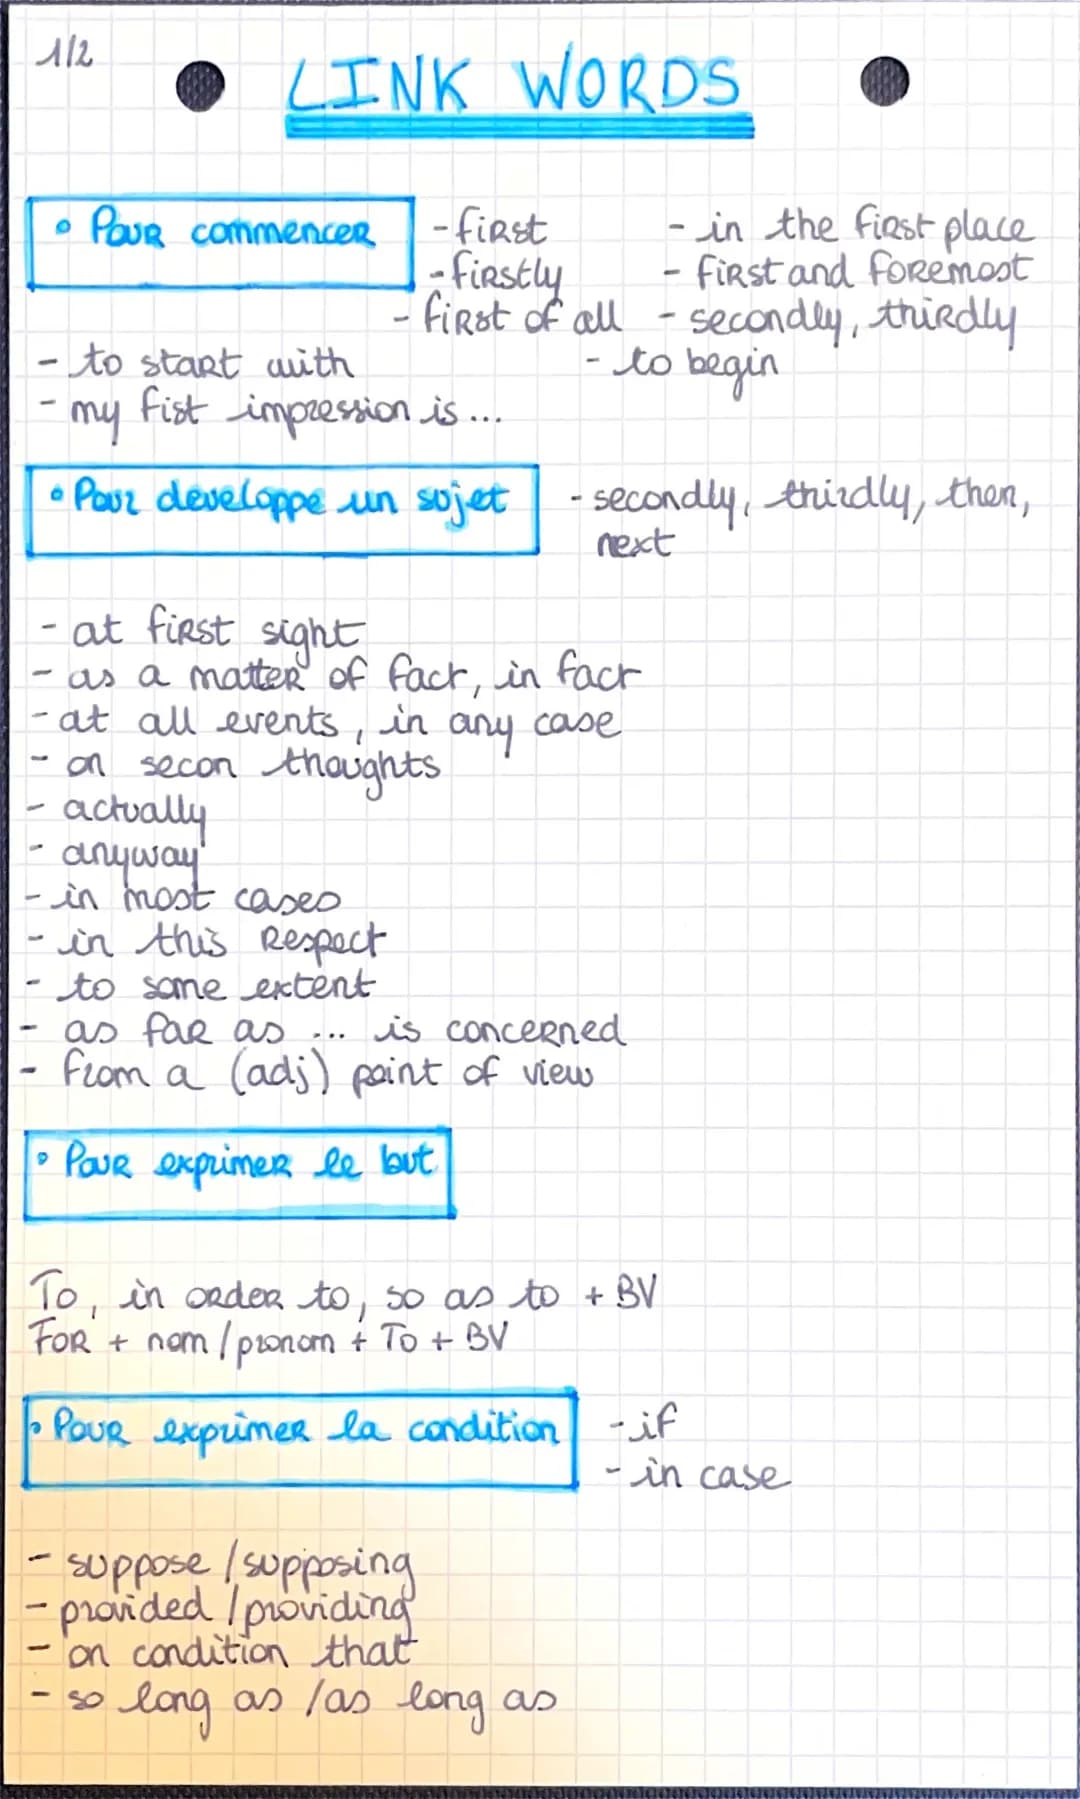 1/2
LINK WORDS
• Pour commencer
- first - in the first place
- firstly - first and foremost
- first of all - secondly, thirdly
- to start with - to begin
- my fist impression is...
• Pour developpe un sujet - secondly, thirdly, then,
next
- at first sight
- as a matter of fact, in fact
- at all events, in any case
- on secon thoughts
- actually
- anyway
- in most cases
- in this respect
- to some extent
- as far as ... is concerned
- from a (adj) point of view
• Pour exprimer le but
To, in order to, so as to + BV
FOR + nom/pronom + To + BV
• Pour exprimer la condition - if
- in case
- suppose / supposing
- provided / providing
- on condition that
- so long as / as long as